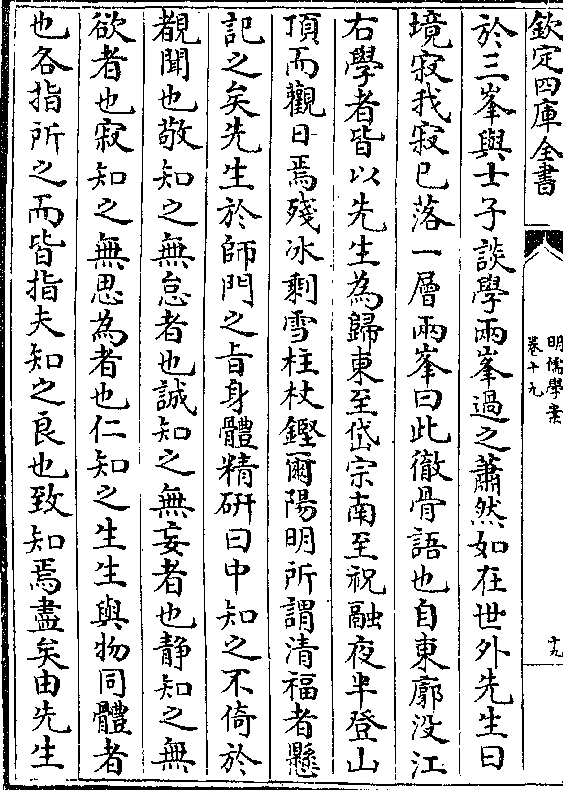 欽定四庫全書
明儒學案
卷十九
十九
於三峯與士子談學兩峯過之蕭然如在世外先生曰
境寂我寂已落一層兩峯曰此徹骨語也自東廓没江
右學者皆以先生為歸東至岱宗南至祝融夜半登山
頂而觀日焉殘冰剩雪柱杖鏗爾陽明所謂清福者懸
記之矣先生於師門之旨身體精研曰中知之不倚於
覩聞也敬知之無怠者也誠知之無妄者也静知之無
欲者也寂知之無思為者也仁知之生生與物同體者
也各指所之而皆指夫知之良也致知焉盡矣由先生